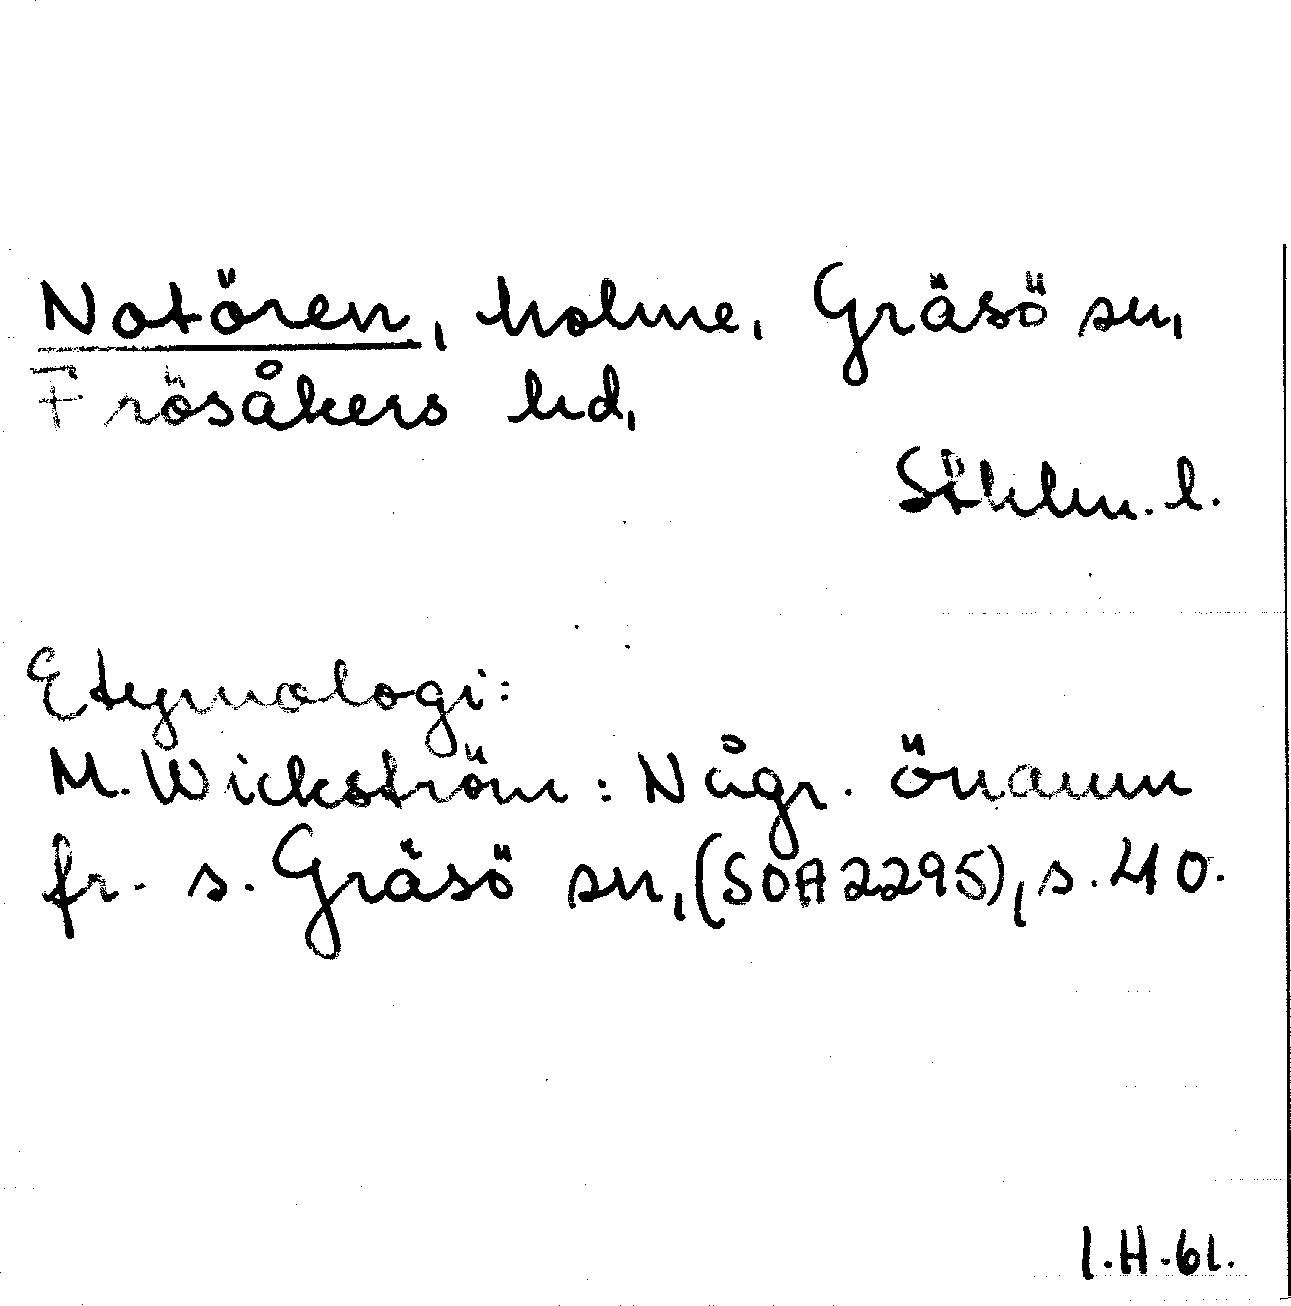 Notören, holme, Gräsö sn,
Frösåkers hd,
Sthlm. l.
Etymologi:
M. Wickström: Någr. önamn
fr. s. Gräsö sn, (SOA 2295), s. 40.
I.H. 61.